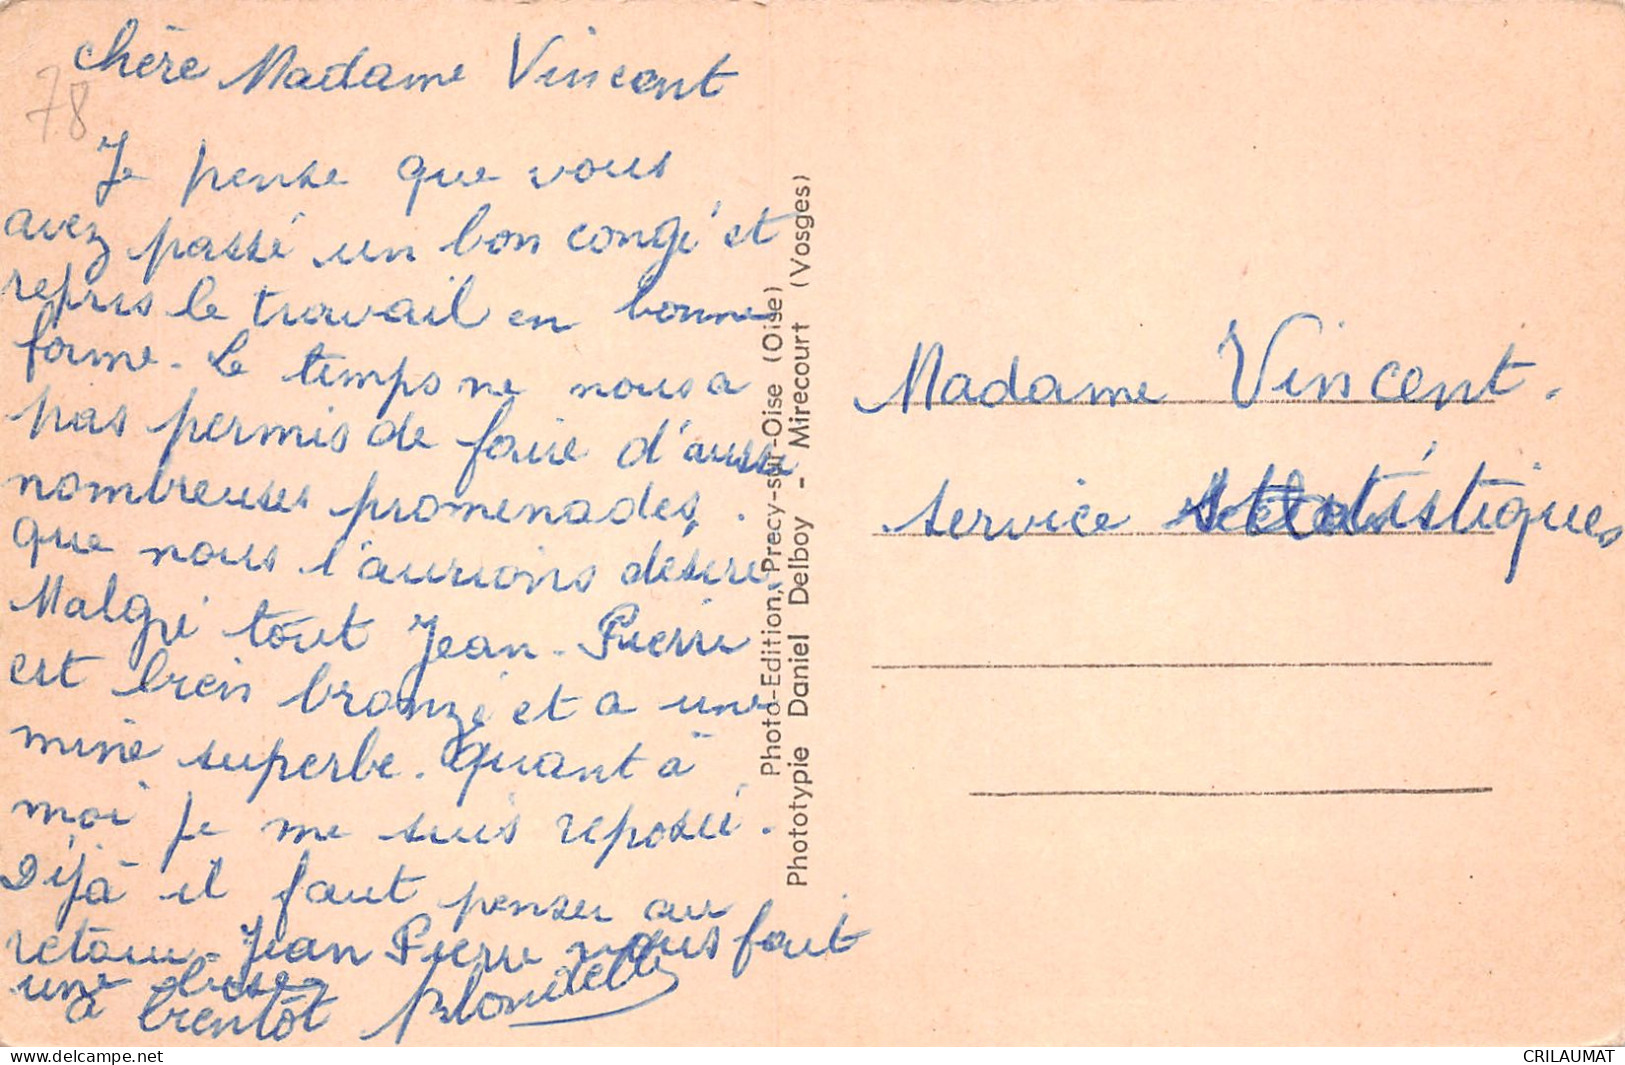 chère Madame Vincent
78
Je pense que vous
avez passé un bon congé et
repris le travail en bonne
forme. Le temps ne nous a
pas permis de faire d'aussi
nombreuses promenades.
que nous l'aurions désiré.
Malgré tout Jean-Pierre
est bien bronzé et a une
mine superbe. Quant à
moi je me suis reposée.
Déjà il faut penser au
retour. Jean Pierre vous fait
une bise
à bientôt Blondelle
Photo-Edition, Precy-sur-Oise (Oise)
Phototypie Daniel Delboy - Mirecourt (Vosges)
Madame Vincent.
service statistiques
CRILAUMAT